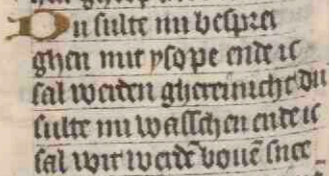 Du sulte mi bespreẏ
ghen mit ysope ende ic
sal werden ghereinicht Du
sulte mi wasschen ende ic
sal wit werdē bouē snee